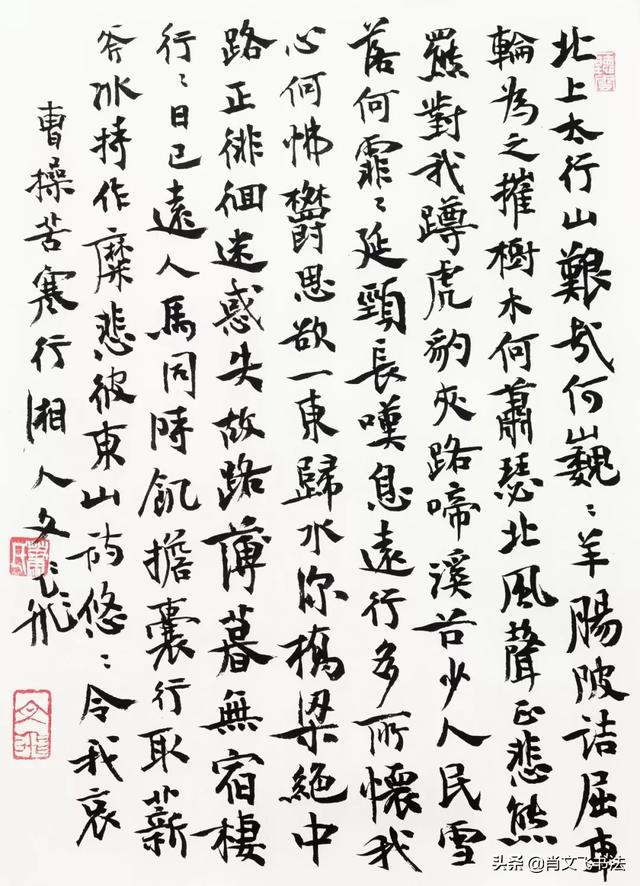 北上太行山艱哉何巍〻羊腸陂詰屈車
輪為之摧樹木何蕭瑟北風聲正悲熊
羆對我蹲虎豹夾路啼溪谷少人民雪
落何霏〻延頸長嘆息遠行多所懷我
心何怫鬱思欲一東歸水深橋梁絕中
路正徘徊迷惑失故路薄暮無宿棲
行〻日已遠人馬同時飢擔囊行取薪
斧冰持作糜悲彼東山詩悠〻令我哀
曹操苦寒行湘人文飛
蕭氏
文飛
头条 @肖文飞书法